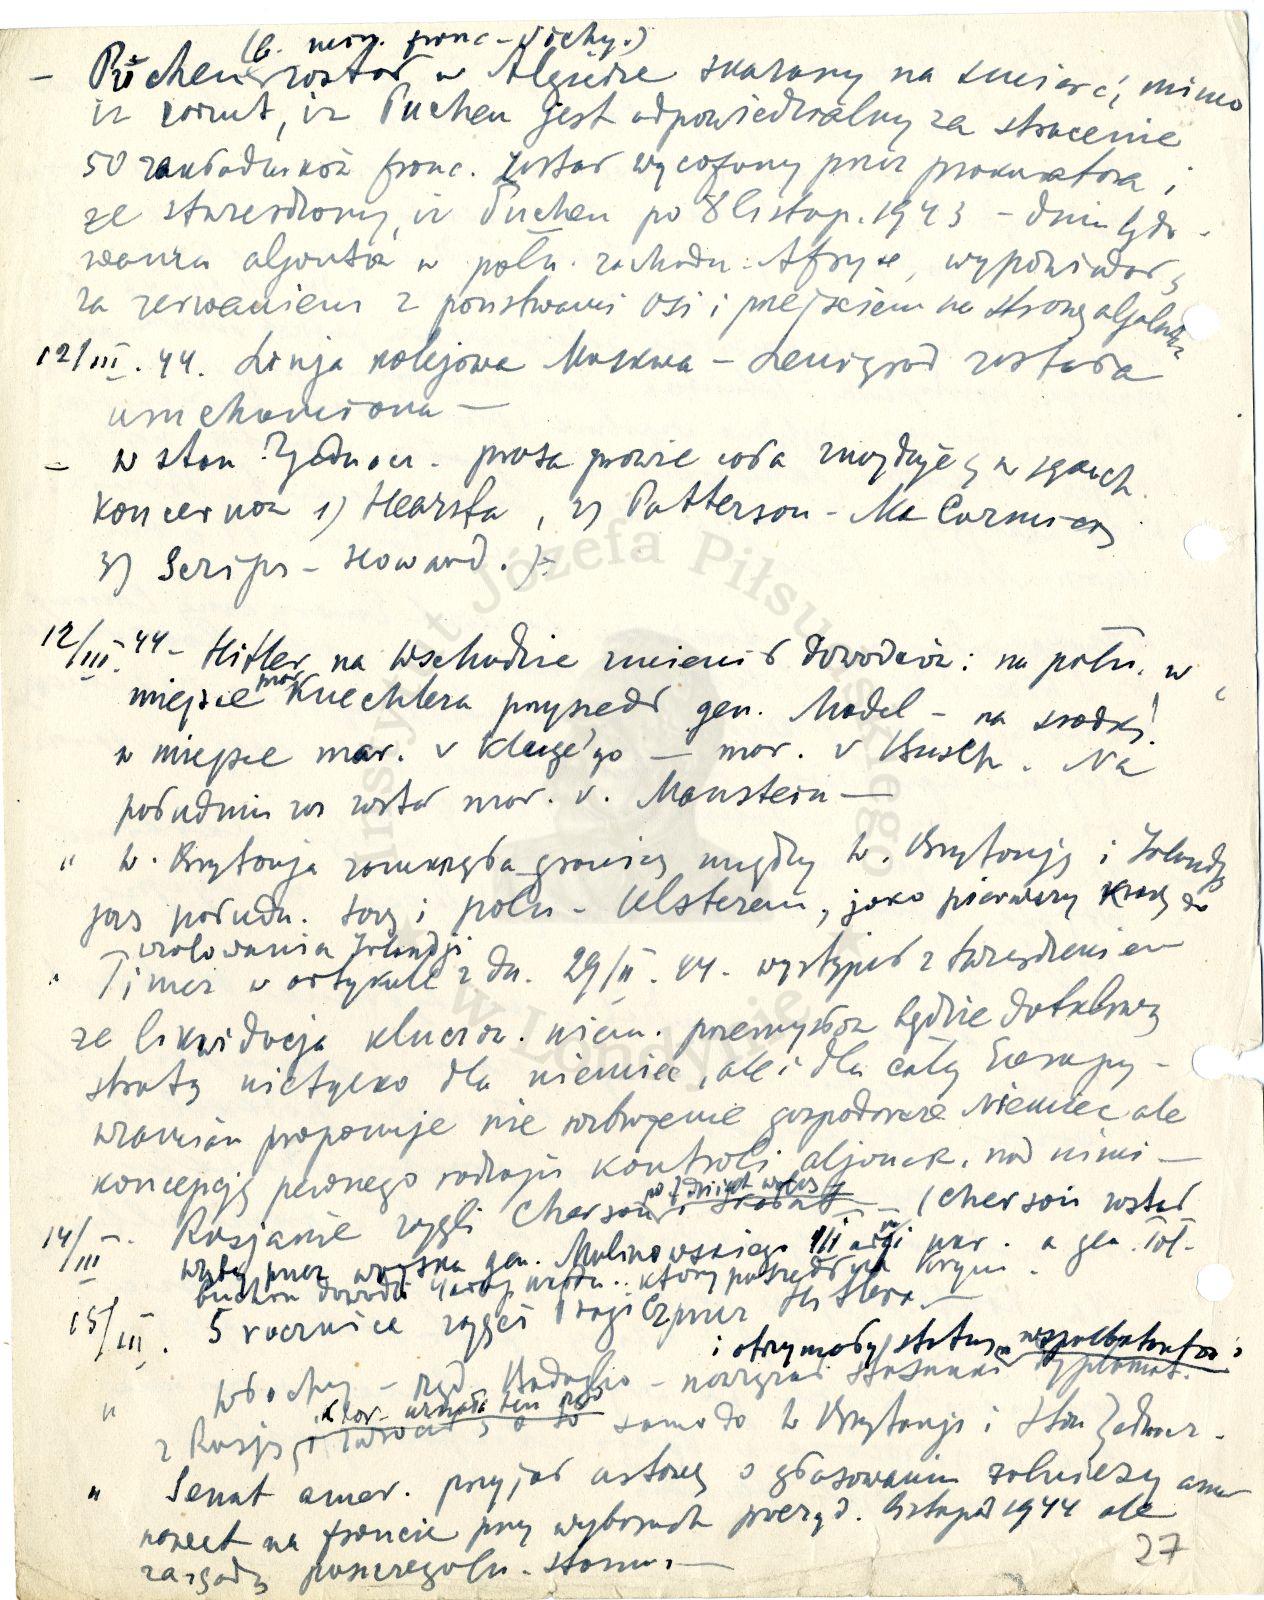 (b. min. franc - Vichy.)
- Pucheu został w Algierze skazany na śmierć, mimo
iż zarzut, iż Pucheu jest odpowiedzialny za stracenie
50 zakładników franc. został wycofany przez prokuratora i
że stwierdzony, iż Pucheu po 8 listop. 1943 - dniu lądo-
wania aljantów w półn. zachodn. Afryce, wypowiadał się
za zerwaniem z państwami osi i przejściem na stronę aljantów
12/III. 44. Linja kolejowa Moskwa - Leningrad została
uruchomiona -
- w Stan. Zjednocz. prasa prawie cała znajduje się w rękach
koncernów 1) Hearsta, 2) Patterson - Mc Cormick
3) Scrips - Howard.)
12/III. 44 - Hitler na wschodzie zmienił dowódców: na półn. w
miejsce mar. Kuechlera przyszedł gen. Model - na środku
w miejsce mar. v Kluge'go - mar. v Busch. Na
południu zaś został mar. v. Manstein -
" W. Brytanja zamknęła granicę między W. Brytanją i Irlandją
jej połudn. i półn - Ulsterem, jako pierwszy krok do
izolowania Irlandji
" Times w artykule z dn. 29/II. 44. wystąpił z twierdzeniem
że likwidacja klucz. niem. przemysłów będzie dotkliwą
stratą nietylko dla niemiec, ale i dla całej Europy -
wzamian proponuje nie rozbrojenie gospodarcze Niemiec ale
koncepcję pewnego rodzaju kontroli aljanck. nad nimi -
14/III. Rosjanie zajęli Cherson (Cherson został
wzięty przez wojska gen. Malinowskiego III armji ukr. a gen. Toł-
buchin dowódca 4 armji który Krym.
15/III. 5 rocznica zajęcia Pragi przez Hitlera -
i otrzymały status współbojowników
" Włochy - rząd Badoglio - nawiązał stosunki dyplomat.
z Rosją, uznała ten rząd a to samo do W Brytanji i Stan Zjednocz.
" Senat amer. przyjął ustawę o głosowaniu żołnierzy amer
nawet na froncie przy wyborach prezyd. listopad 1944 ale
za zgodą poszczególn. stanów -
27
Instytut Józefa Piłsudskiego
w Londynie